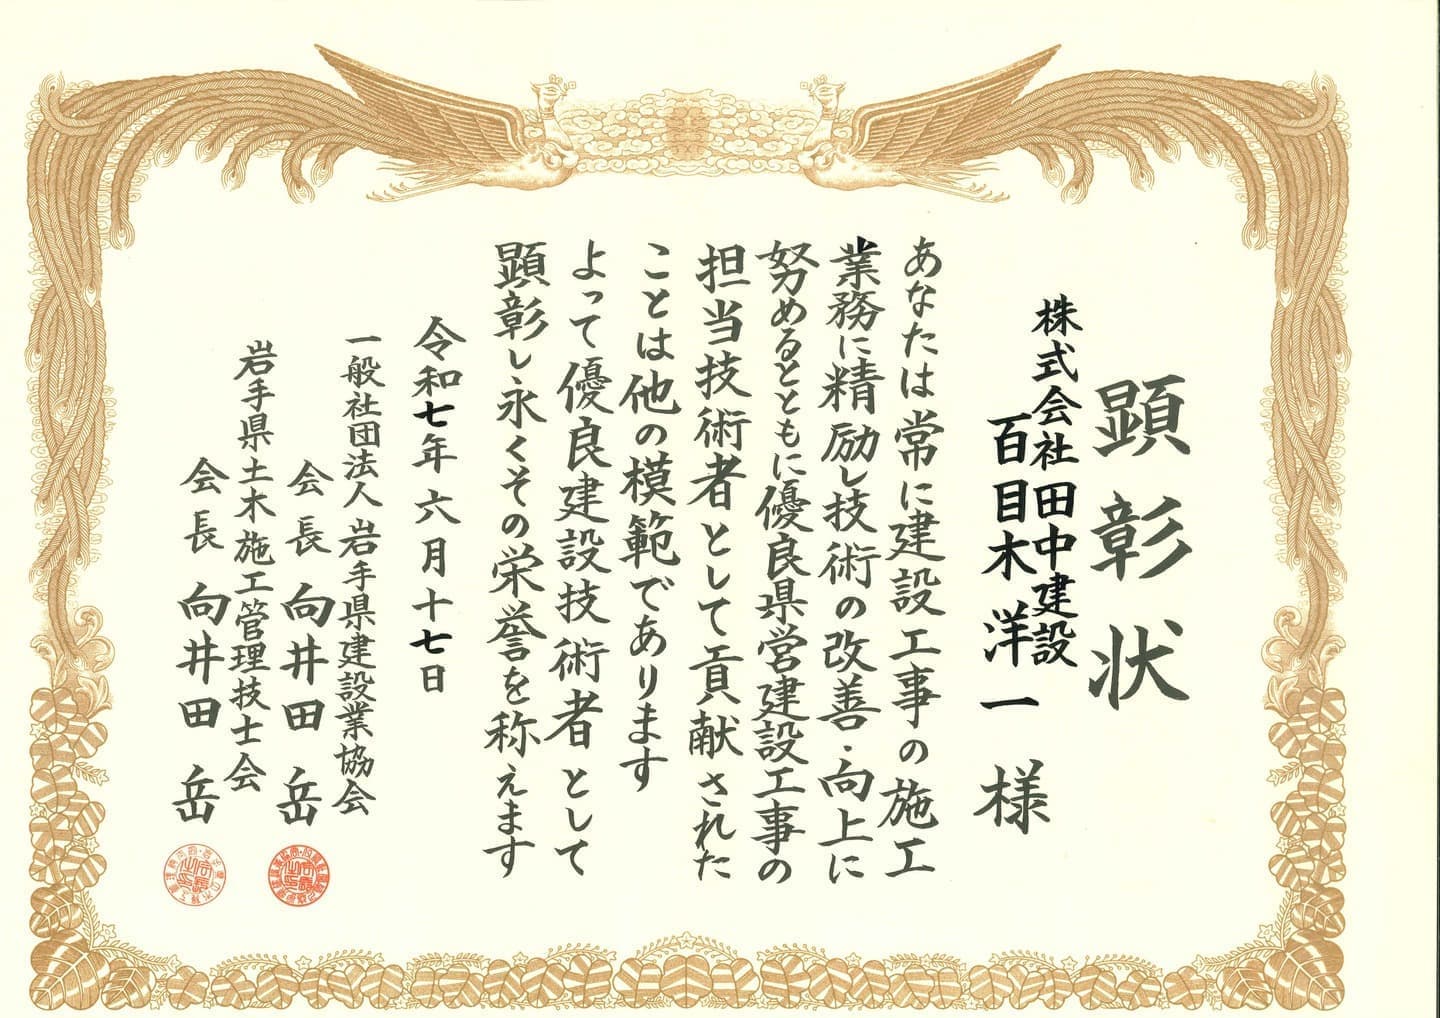 顕彰状
株式会社田中建設
百目木洋一様
あなたは常に建設工事の施工
業務に精励し技術の改善・向上に
努めるとともに優良県営建設工事の
担当技術者として貢献された
ことは他の模範であります
よって優良建設技術者として
顕彰し永くその栄誉を称えます
令和七年六月十七日
一般社団法人岩手県建設業協会
会長向井田岳
岩手県土木施工管理技士会
会長向井田岳